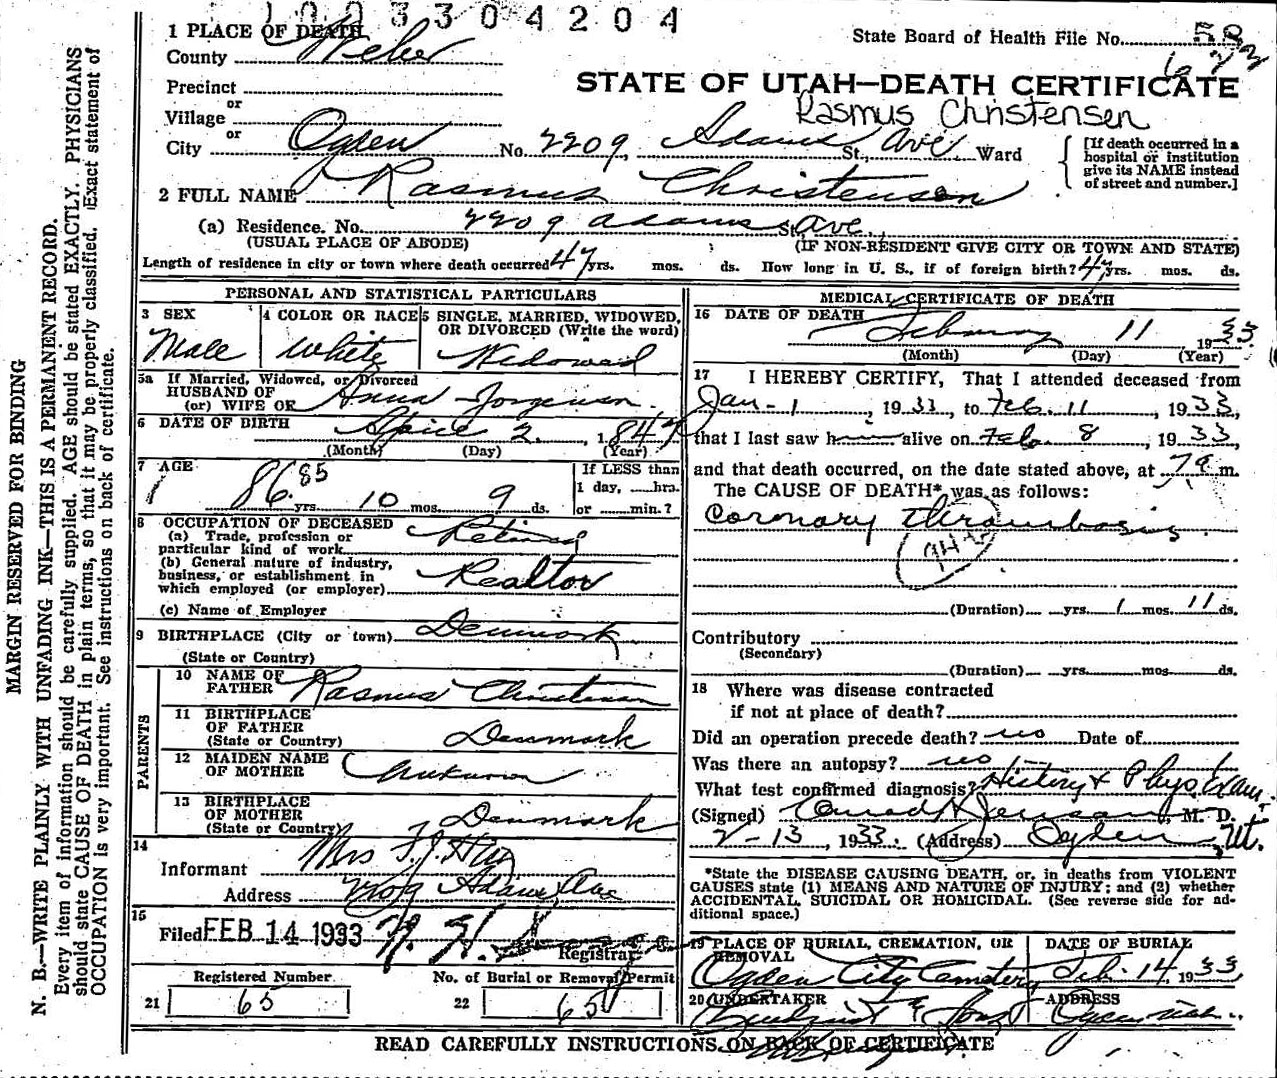 1003304204
State Board of Health File No.
1 PLACE OF DEATH
County Weber
STATE OF UTAH—DEATH CERTIFICATE
Precinct
or
Rasmus Christensen
Village
or
City Ogden No. 2209, Adams St., Ave Ward
[If death occurred in a hospital or institution give its NAME instead of street and number.]
2 FULL NAME Rasmus Christensen
(a) Residence. No. 2209 Adams St. Ave.
(USUAL PLACE OF ABODE) (IF NON-RESIDENT GIVE CITY OR TOWN AND STATE)
Length of residence in city or town where death occurred 47 yrs. mos. ds. How long in U. S., if of foreign birth? 47 yrs. mos. ds.
PERSONAL AND STATISTICAL PARTICULARS
3 SEX 4 COLOR OR RACE 5 SINGLE, MARRIED, WIDOWED, OR DIVORCED (Write the word)
Male White Widowed
5a If Married, Widowed, or Divorced
HUSBAND OF
(or) WIFE OF Anna Jorgensen
6 DATE OF BIRTH April 2, 1847
(Month) (Day) (Year)
7 AGE If LESS than
86 85 yrs. 10 mos. 9 ds. 1 day, hrs.
or min.?
8 OCCUPATION OF DECEASED
(a) Trade, profession or
particular kind of work Retired
(b) General nature of industry,
business, or establishment in
which employed (or employer) Realtor
(c) Name of Employer
9 BIRTHPLACE (City or town) Denmark
(State or Country)
PARENTS
10 NAME OF
FATHER Rasmus Christensen
11 BIRTHPLACE
OF FATHER
(State or Country) Denmark
12 MAIDEN NAME
OF MOTHER
13 BIRTHPLACE
OF MOTHER
(State or Country) Denmark
14
Informant Mrs F. J.
Address 2209 Adams Ave
15
Filed FEB 14 1933
Registrar
Registered Number No. of Burial or Removal Permit
21 65 22 65
MEDICAL CERTIFICATE OF DEATH
16 DATE OF DEATH February 11 1933
(Month) (Day) (Year)
17 I HEREBY CERTIFY, That I attended deceased from
Jan - 1, 1933, to Feb. 11, 1933,
that I last saw h alive on Feb. 8, 1933,
and that death occurred, on the date stated above, at 7 a m.
The CAUSE OF DEATH* was as follows:
Coronary thrombosis
(Duration) yrs. 1 mos. 11 ds.
Contributory
(Secondary)
(Duration) yrs. mos. ds.
18 Where was disease contracted
if not at place of death?
Did an operation precede death? no Date of
Was there an autopsy? no
What test confirmed diagnosis? History & Phys. Exam.
(Signed) Conrad H Jensen, M. D.
2-13 1933. (Address) Ogden, Ut.
*State the DISEASE CAUSING DEATH, or, in deaths from VIOLENT
CAUSES state (1) MEANS AND NATURE OF INJURY; and (2) whether
ACCIDENTAL, SUICIDAL OR HOMICIDAL. (See reverse side for ad-
ditional space.)
19 PLACE OF BURIAL, CREMATION, OR DATE OF BURIAL
REMOVAL
Ogden City Cemetery Feb. 14, 1933
20 UNDERTAKER ADDRESS
& Sons Ogden Utah
READ CAREFULLY INSTRUCTIONS ON BACK OF CERTIFICATE
MARGIN RESERVED FOR BINDING
N. B.—WRITE PLAINLY WITH UNFADING INK—THIS IS A PERMANENT RECORD.
Every item of information should be carefully supplied. AGE should be stated EXACTLY. PHYSICIANS
should state CAUSE OF DEATH in plain terms, so that it may be properly classified. Exact statement of
OCCUPATION is very important. See instructions on back of certificate.